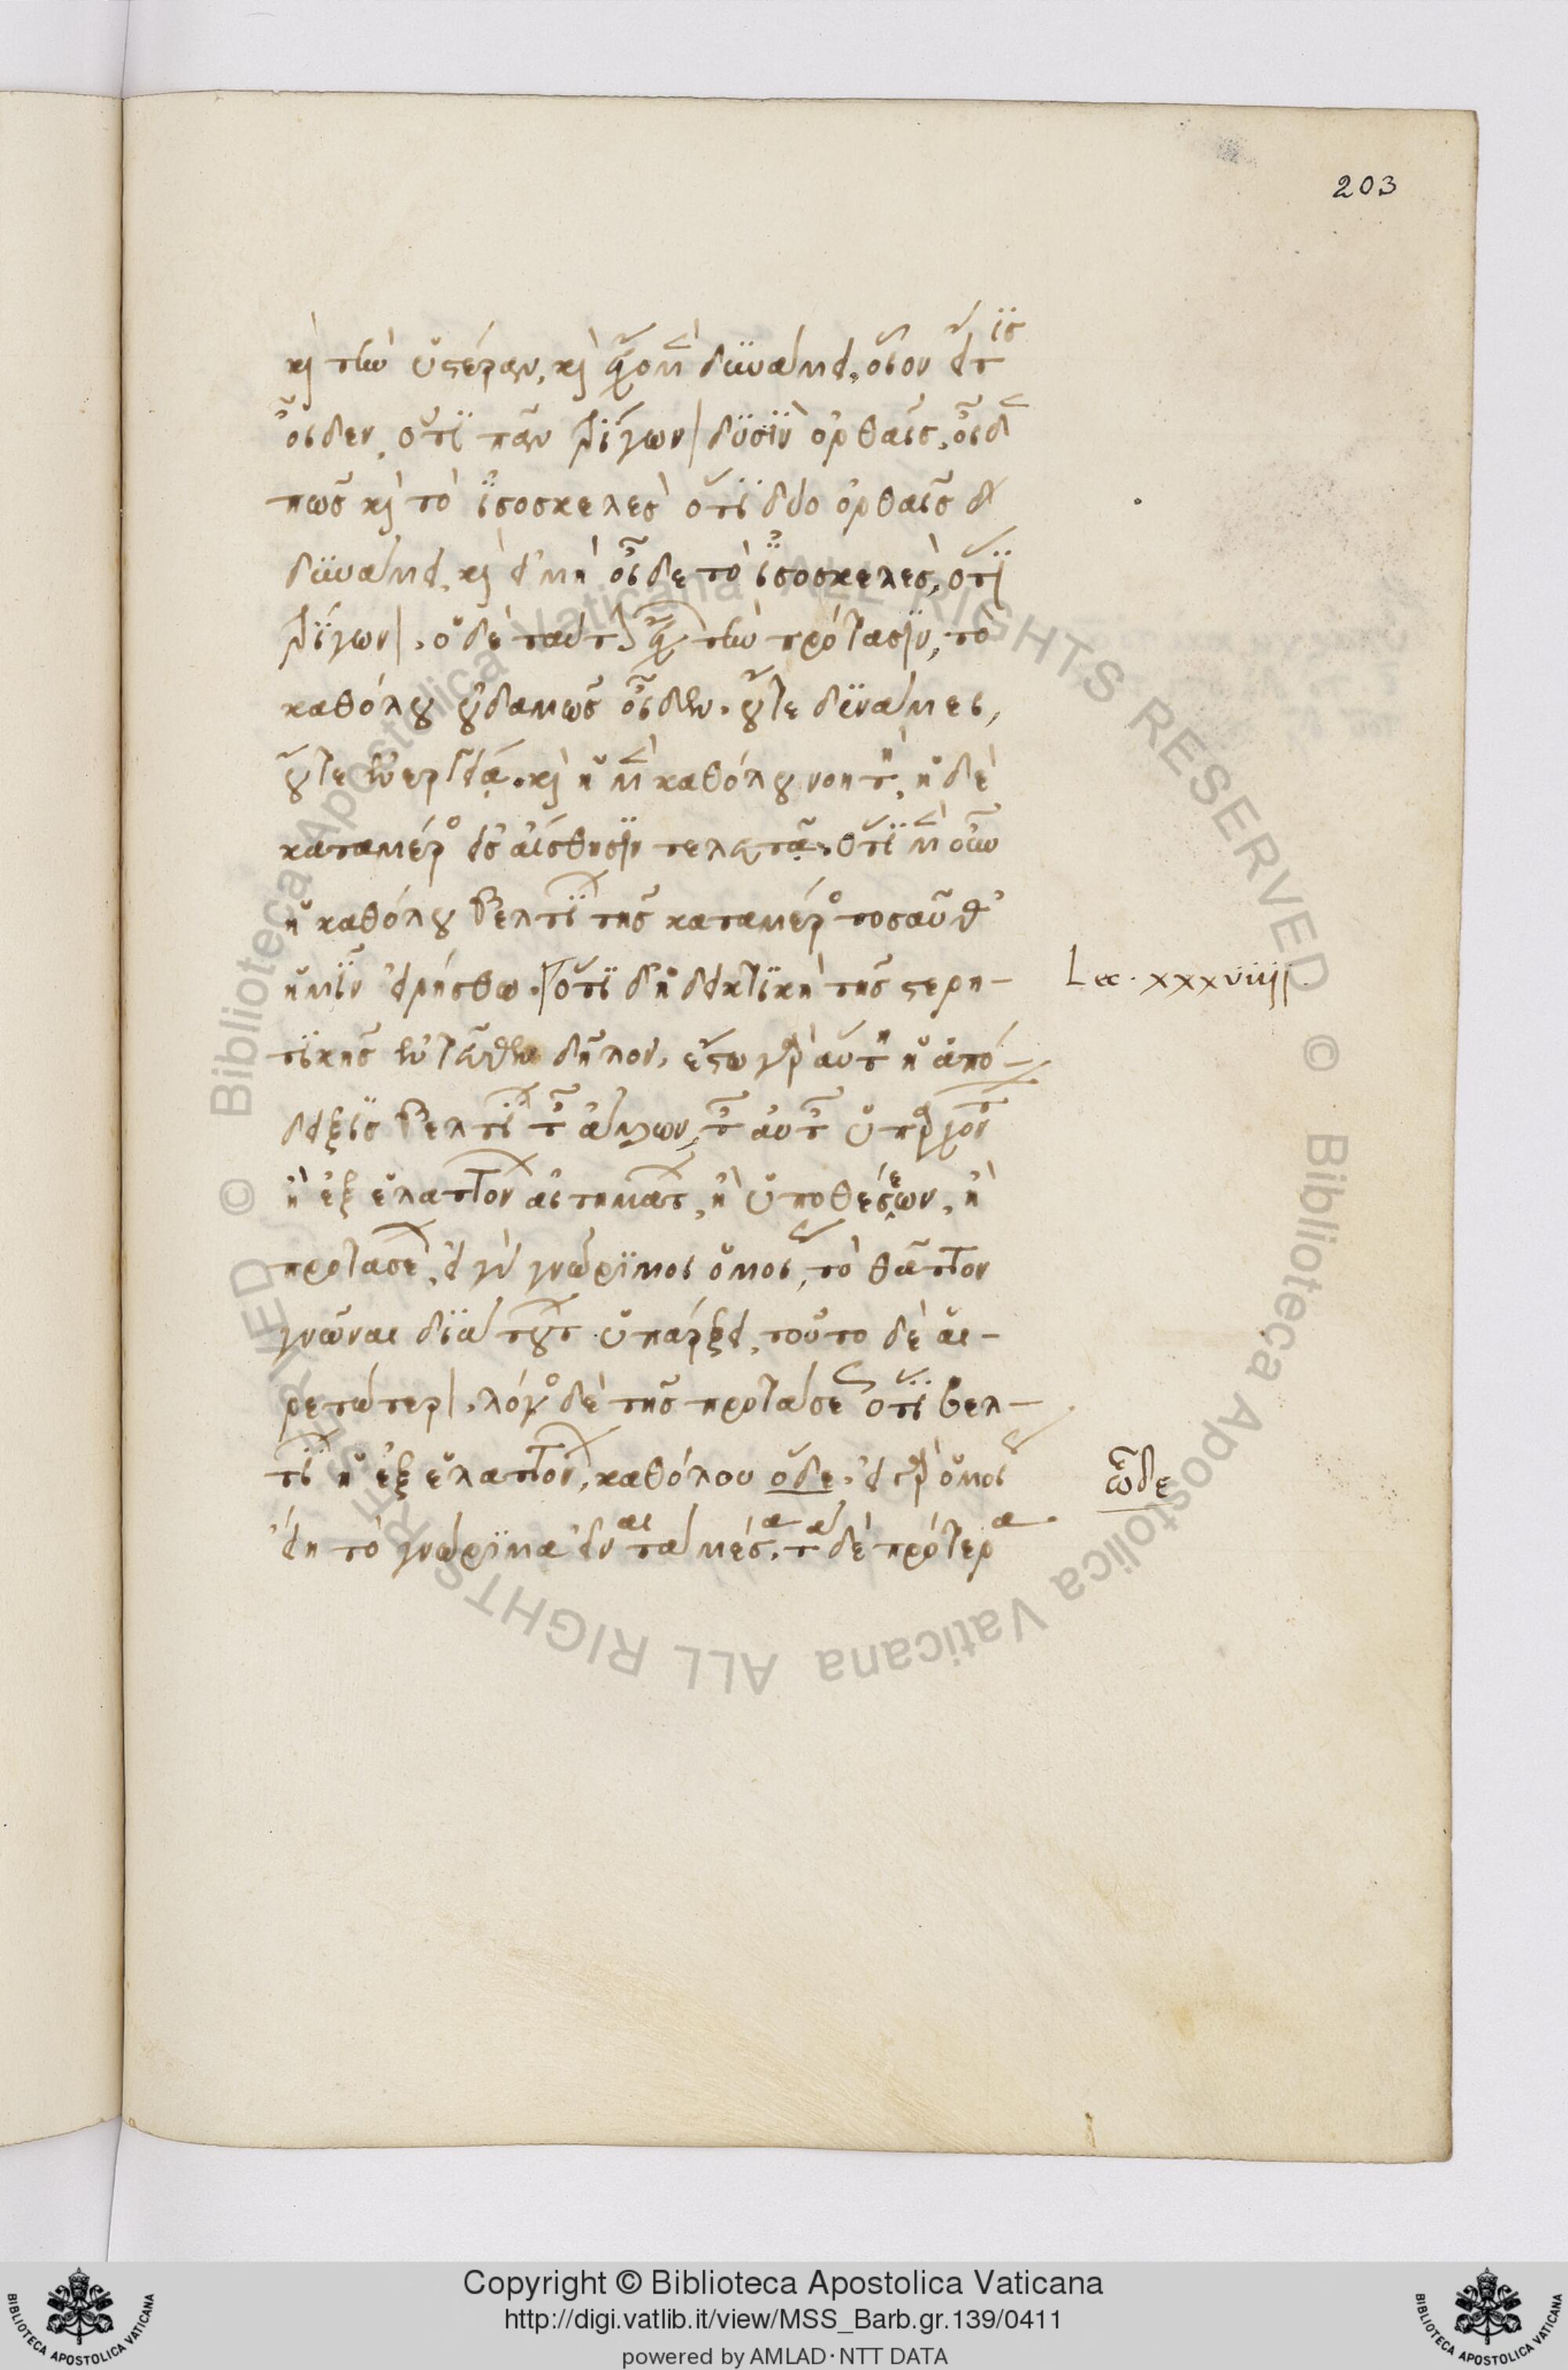 203
καὶ τὴν ὑστέραν, καὶ ἔχομεν δυνάμει, οἷον εἴ τις
οἶδεν ὅτι πᾶν τρίγωνον δυσὶν ὀρθαῖς, οἶδέ
πως καὶ τὸ ἰσοσκελὲς ὅτι δύο ὀρθαῖς
δυνάμει, καὶ εἰ μὴ οἶδε τὸ ἰσοσκελὲς, ὅτι
τρίγωνον. ὁ δὲ ταύτην ἔχων τὴν πρότασιν, τὸ
καθόλου οὐδαμῶς οἶδεν. οὔτε δυνάμει,
οὔτε ἐνεργείᾳ. καὶ ἡ μὲν καθόλου νοητὴ, ἡ δὲ
καταμέρος εἰς αἴσθησιν τελευτᾷ. ὅτι μὲν οὖν
ἡ καθόλου βελτίων τῆς καταμέρος τοσαῦθ'
ἡμῖν εἰρήσθω. ὅτι δ' ἡ δεικτικὴ τῆς στερη-
τικῆς ἐντεῦθεν δῆλον. ἔστω γὰρ αὕτη ἡ ἀπό-
δειξις βελτίων τῶν ἄλλων, τῶν αὐτῶν ὑπαρχόντων
ἢ ἐξ ἐλαττόνων αἰτημάτων, ἢ ὑποθέσεων, ἢ
προτάσεων. εἰ γὰρ γνώριμοι ὁμοίως, τὸ θᾶττον
γνῶναι διὰ τούτων ὑπάρξει, τοῦτο δὲ αἱ-
ρετώτερον. λόγος δὲ τῆς προτάσεως ὅτι βελ-
τίων ἡ ἐξ ἐλαττόνων, καθόλου ὅδε. εἰ γὰρ ὁμοίως
εἴη τὸ γνώριμα εἶναι τὰ μέσα. τὰ δὲ πρότερα
Lec. xxxviiij.
ὧδε
Copyright © Biblioteca Apostolica Vaticana
http://digi.vatlib.it/view/MSS_Barb.gr.139/0411
powered by AMLAD·NTT DATA